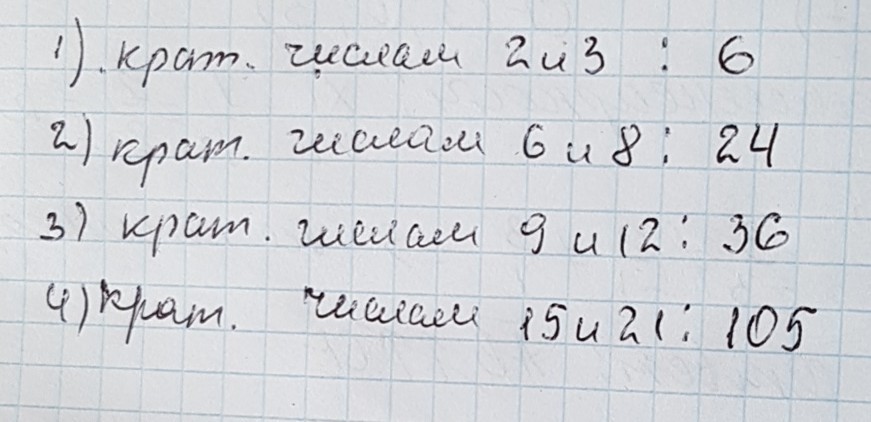 1) крат. числам 2 и 3 : 6
2) крат. числам 6 и 8 : 24
3) крат. числам 9 и 12 : 36
4) крат. числам 15 и 21 : 105